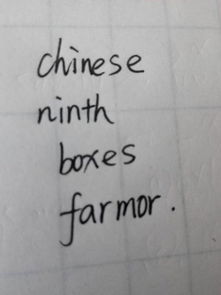 chinese
ninth
boxes
farmor.